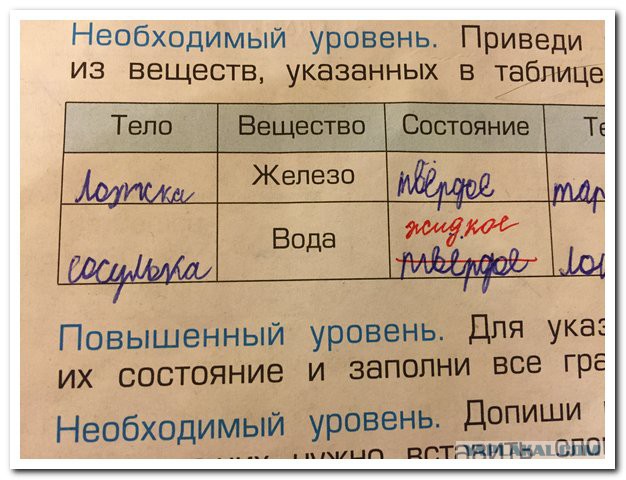 Необходимый уровень. Приведи
из веществ, указанных в таблице
Тело Вещество Состояние Те
ложка Железо твёрдое тар
жидкое
сосулька Вода твёрдое ло
Повышенный уровень. Для указ
их состояние и заполни все гра
Необходимый уровень. Допиши
нужно вставить